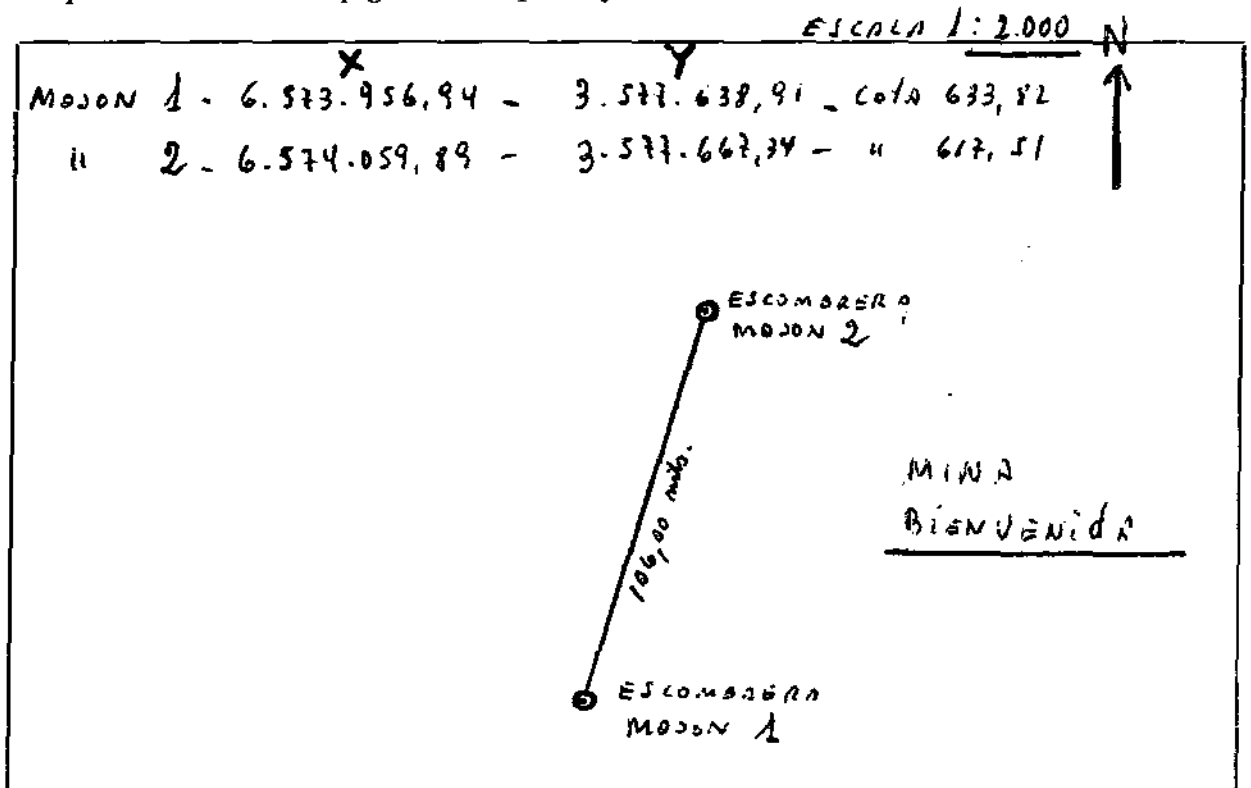 ESCALA 1:2.000 N
X Y
MOJON 1 - 6.573.956,94 - 3.577.638,91 - Cota 633,82
" 2 - 6.574.059,89 - 3.577.667,34 - " 617,51
ESCOMBRERA
MOJON 2
106,00 mts.
MINA
BIENVENIDA
ESCOMBRERA
MOJON 1